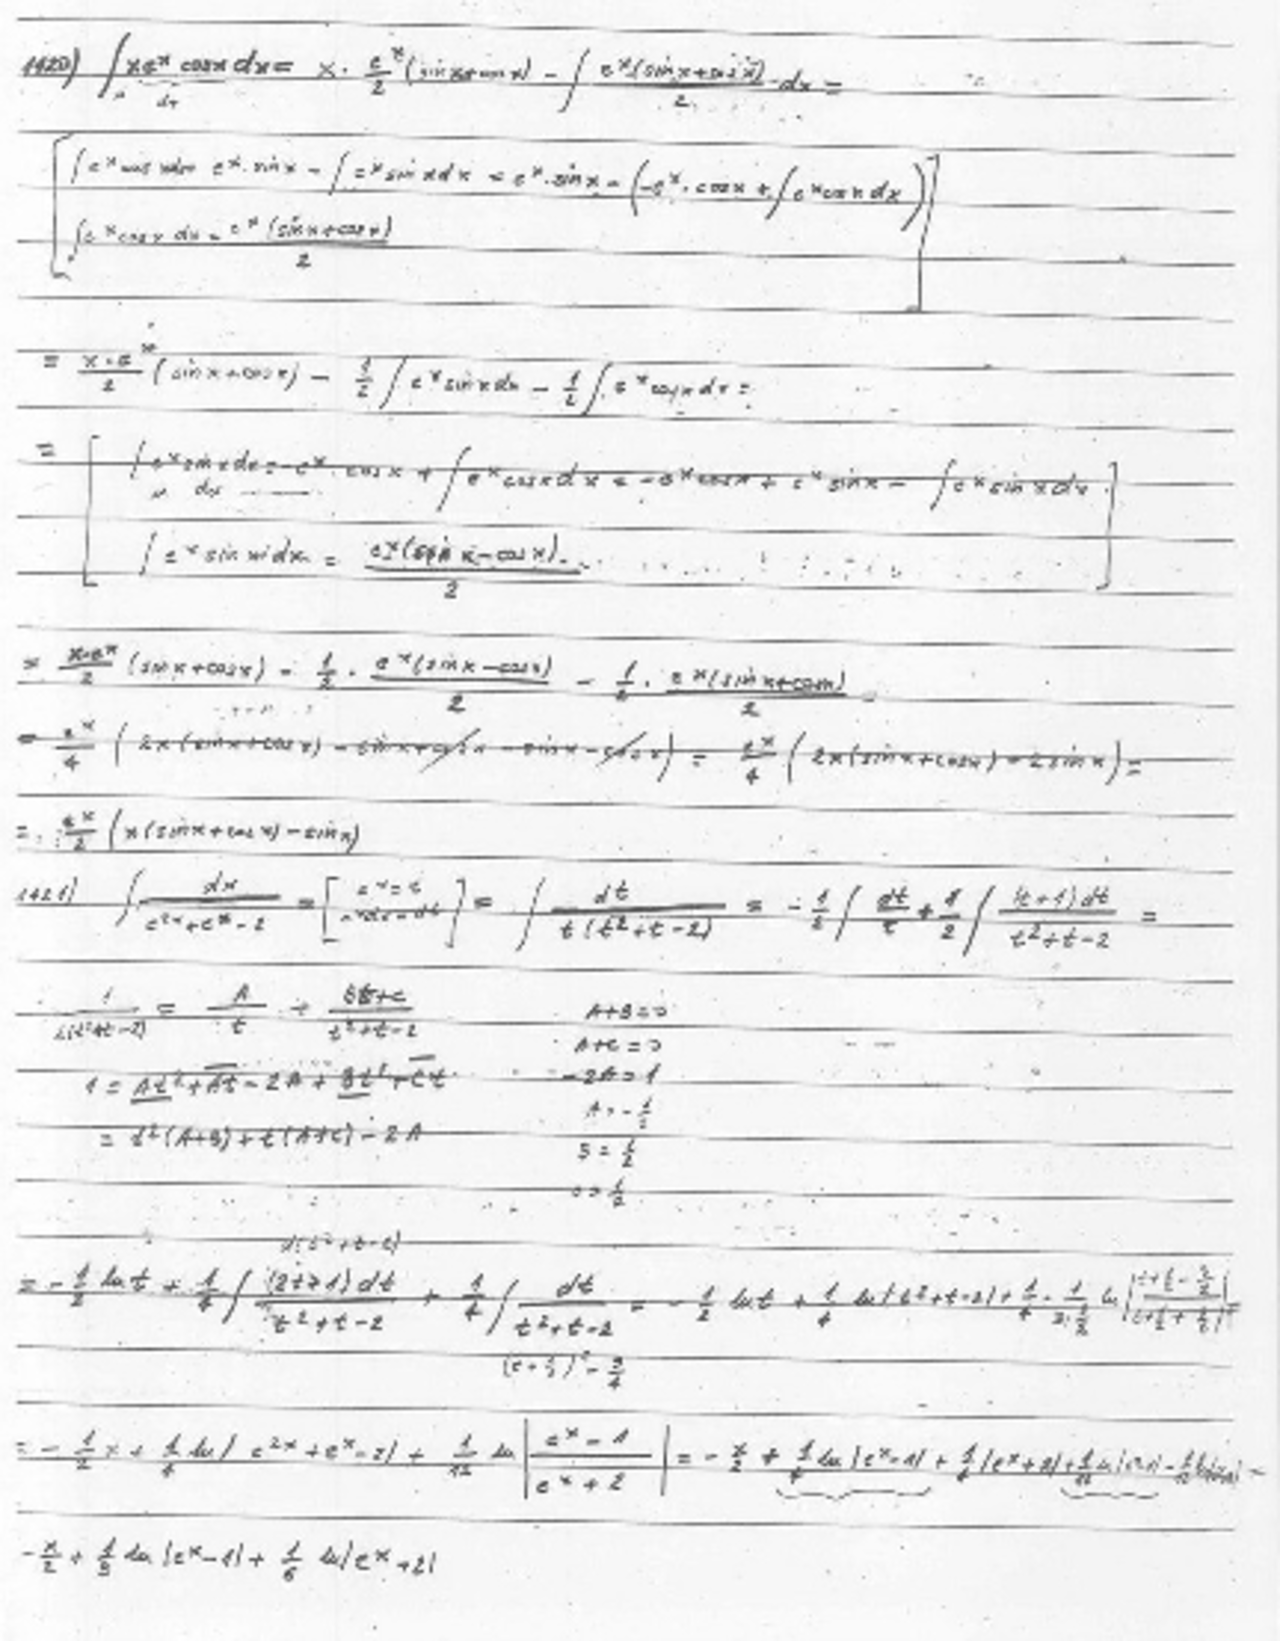 1420) ∫ x e^x cosx dx = x · e^x/2 (sinx+cosx) - ∫ e^x(sinx+cosx)/2 dx =
u dv
[ ∫ e^x cosx dx = e^x · sinx - ∫ e^x sinx dx = e^x · sinx - (-e^x · cosx + ∫ e^x cosx dx) ]
∫ e^x cosx dx = e^x (sinx+cosx)/2
= x·e^x/2 (sinx+cosx) - 1/2 ∫ e^x sinx dx - 1/2 ∫ e^x cosx dx =
= [ ∫ e^x sinx dx = -e^x · cosx + ∫ e^x cosx dx = -e^x cosx + e^x sinx - ∫ e^x sinx dx ]
∫ e^x sinx dx = e^x(sinx-cosx)/2
= x·e^x/2 (sinx+cosx) - 1/2 · e^x(sinx-cosx)/2 - 1/2 · e^x(sinx+cosx)/2
= e^x/4 ( 2x(sinx+cosx) - sinx+cosx - sinx-cosx ) = e^x/4 ( 2x(sinx+cosx) - 2sinx ) =
= e^x/2 ( x(sinx+cosx) - sinx)
1421) ∫ dx/(e^2x+e^x-2) = [ e^x = t e^x dx = dt ] = ∫ dt/(t(t^2+t-2)) = -1/2 ∫ dt/t + 1/2 ∫ (t+1)dt/(t^2+t-2) =
1/(t(t^2+t-2)) = A/t + (Bt+C)/(t^2+t-2) A+B=0
A+C=0
1 = At^2+At-2A+Bt^2+Ct -2A=1
A=-1/2
= t^2(A+B)+t(A+C)-2A
B=1/2
C=1/2
d(t^2+t-2)
= -1/2 ln t + 1/4 ∫ (2t+1)dt/(t^2+t-2) + 1/4 ∫ dt/(t^2+t-2) = -1/2 ln t + 1/4 ln|t^2+t-2| + 1/4 · 1/(2·3/2) ln |(t+1/2-3/2)/(t+1/2+3/2)| =
= -1/2 x + 1/4 ln| e^2x+e^x-2| + 1/12 ln |(e^x-1)/(e^x+2)| = -x/2 + 1/4 ln|e^x-1| + 1/4 |e^x+2| + 1/12 ln
-x/2 + 1/3 ln |e^x-1| + 1/6 ln|e^x+2|